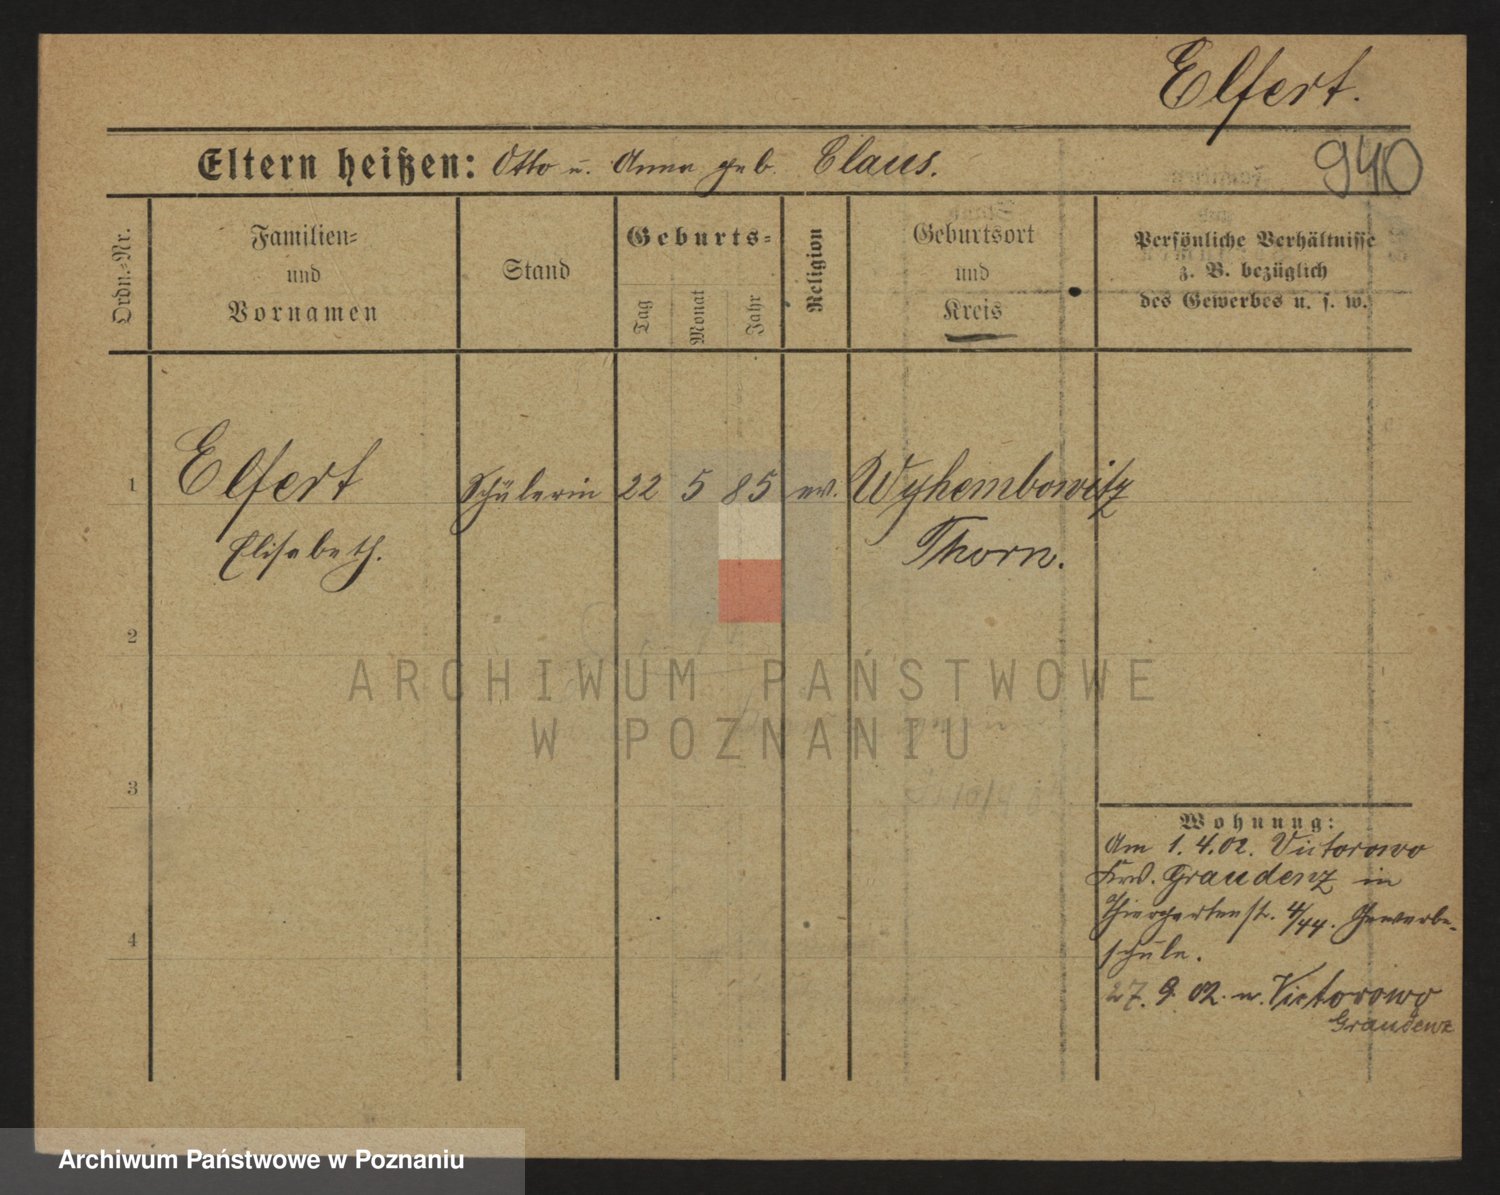 Elfert.
Eltern heißen: Otto u. Anna geb. Claus.
940
Ordn.-Nr.
Familien-
und
Vornamen
Stand
Geburts-
Tag
Monat
Jahr
Religion
Geburtsort
und
Kreis
Persönliche Verhältnisse
z. B. bezüglich
des Gewerbes u. s. w.
1 Elfert Schülerin 22 5 85 ev. Wyhembowitz
Elisabeth. Thorn.
2
3
4
Wohnung:
Am 1.4.02. Victorowo
Graudenz in
Thiergartenstr. 4/44. Gewerbe-
schule.
27. 9. 02. n. Victorowo
Graudenz
ARCHIWUM PAŃSTWOWE
W POZNANIU
Archiwum Państwowe w Poznaniu